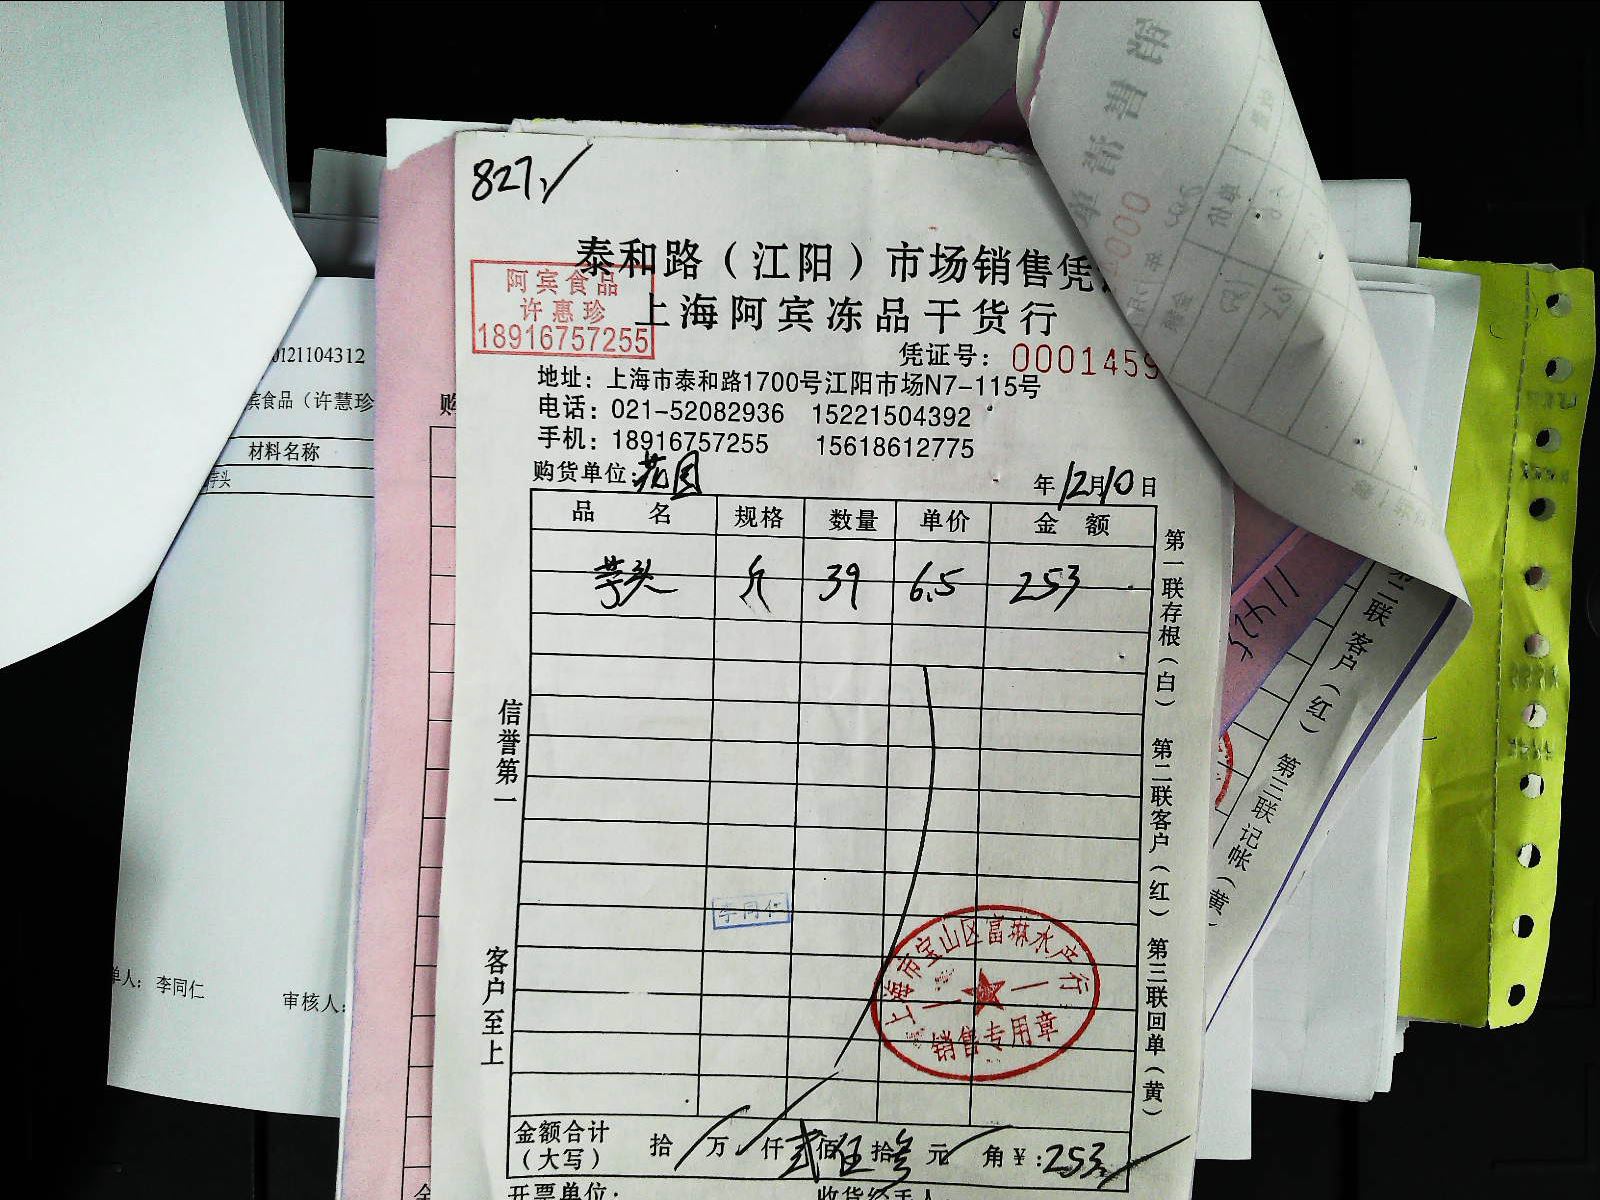 827
泰和路（江阳）市场销售凭
上海阿宾冻品干货行
阿宾食品
许惠珍
18916757255
凭证号：0001459
地址：上海市泰和路1700号江阳市场N7-115号
电话：021-52082936 15221504392
手机：18916757255 15618612775
购货单位：花园 年12月10日
品名 规格 数量 单价 金额
芋头 斤 39 6.5 253
信誉第一
客户至上
第一联存根（白） 第二联客户（红） 第三联回单（黄）
李同仁
上海市宝山区富琳水产行
销售专用章
金额合计（大写） 拾 万 仟 贰佰伍拾叁元 角 ¥：253
开票单位：
0121104312
宾食品（许慧珍
材料名称
芋头
单人：李同仁 审核人：
购
第二联客户（红） 第三联记帐（黄）